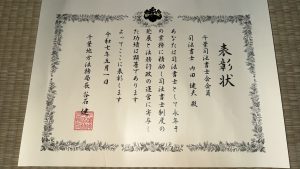 表彰状
千葉司法書士会会員
司法書士 内田 健夫 殿
あなたは司法書士として永年そ
の業務に精励し司法書士制度の
発展と法務行政の運営に寄与し
た功績は顕著であります
よってここに表彰します
令和七年五月一日
千葉地方法務局長